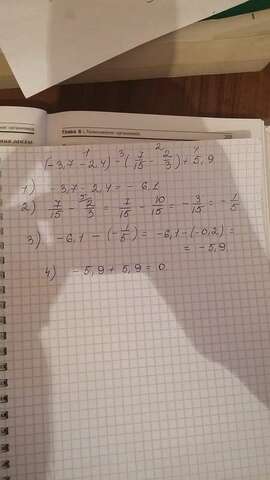 Глава 6
(-3,7 - 2,4) - (7/15 - 2/3) + 5,9
1) -3,7 - 2,4 = -6,1
2) 7/15 - 2/3 = 7/15 - 10/15 = -3/15 = -1/5
3) -6,1 - (-1/5) = -6,1 - (-0,2) =
= -5,9
4) -5,9 + 5,9 = 0